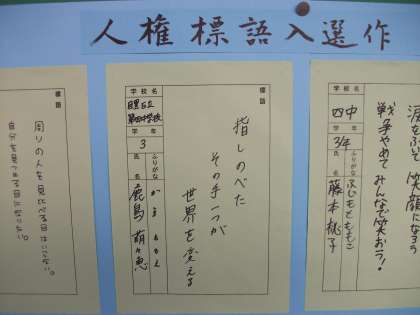 人権標語入選作
標語
涙をふいて 笑顔になろう
戦争やめて みんなで笑おう!
学校名
四中
学年
3年
ふりがな
氏名
ふじもと ももこ
藤本 桃子
標語
指しのべた
その手一つが
世界を変える
学校名
目黒区立
第四中学校
学年
3
ふりがな
氏名
かしま ももえ
鹿島 萌々恵
標語
周りの人を見比べる目はいらない。
自分を見つめる目になりたい。